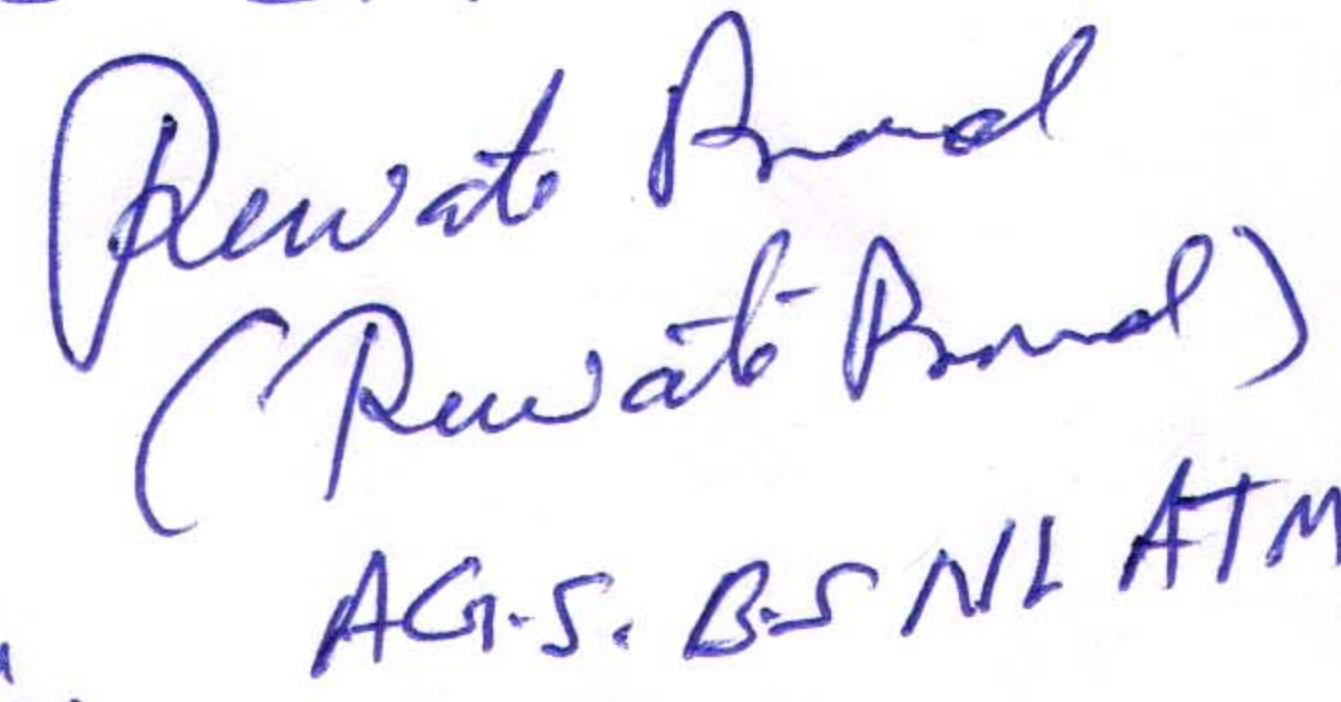 Rewate Pramod
(Rewati Pramod)
A.G.S. B.S NL ATM